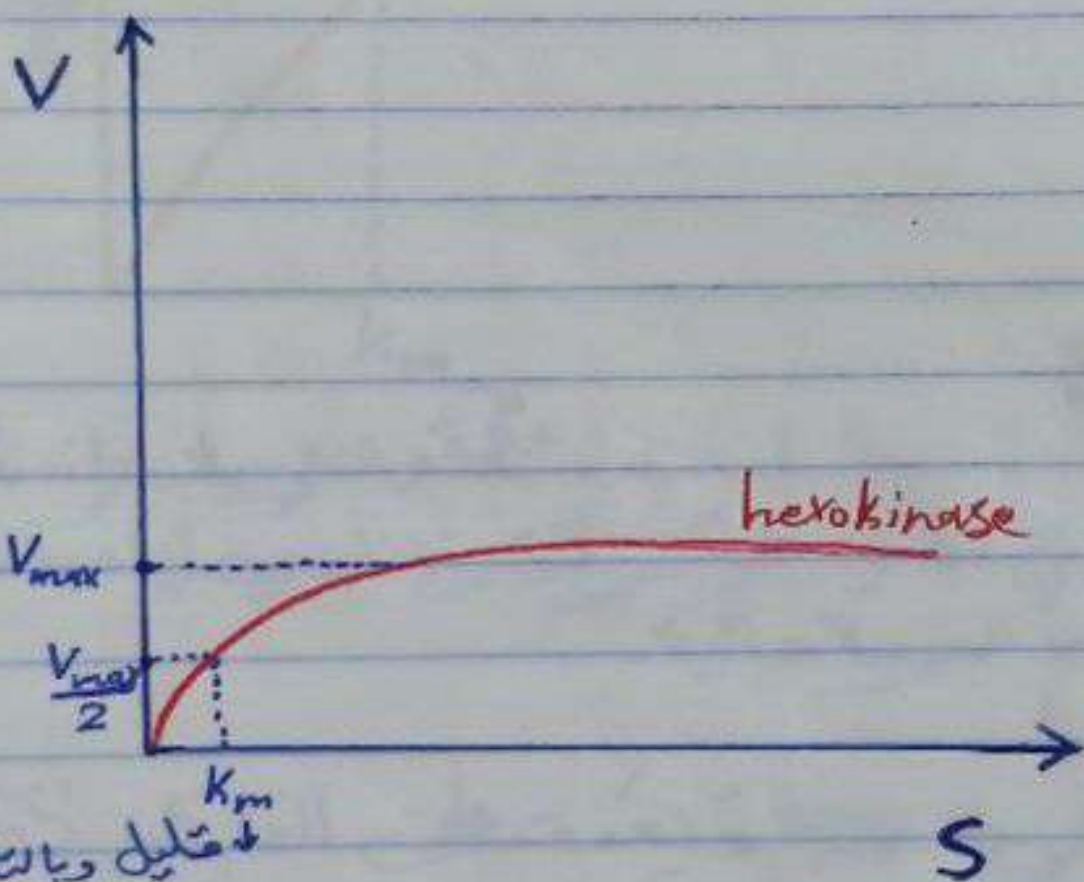 V
hexokinase
Vmax
Vmax
2
Km
قليل
S